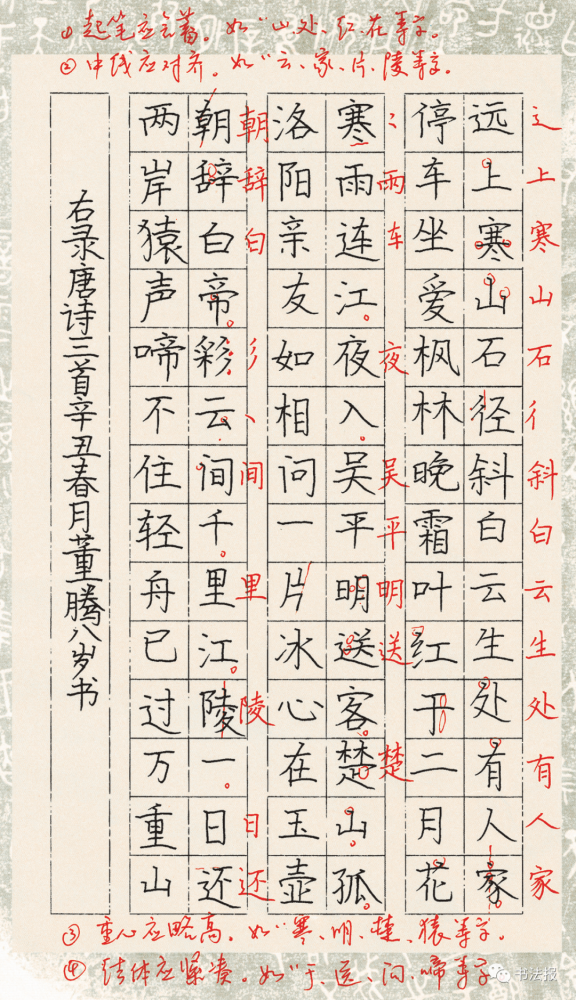 ① 起笔应含蓄。如"山、处、红、花等字。
② 中线应对齐。如"云、家、片、陵等字。
辶上寒山石彳斜白云生处有人家
远上寒山石径斜白云生处有人家
停车坐爱枫林晚霜叶红于二月花
雨车夜吴平明送楚
寒雨连江夜入吴平明送客楚山孤
洛阳亲友如相问一片冰心在玉壶
朝辞白彡丶间里陵日还
朝辞白帝彩云间千里江陵一日还
两岸猿声啼不住轻舟已过万重山
右录唐诗三首辛丑春月董腾八岁书
③ 重心应略高。如"寒、明、楚、猿等字。
④ 结体应紧凑。如"于、送、问、啼等字
书法报